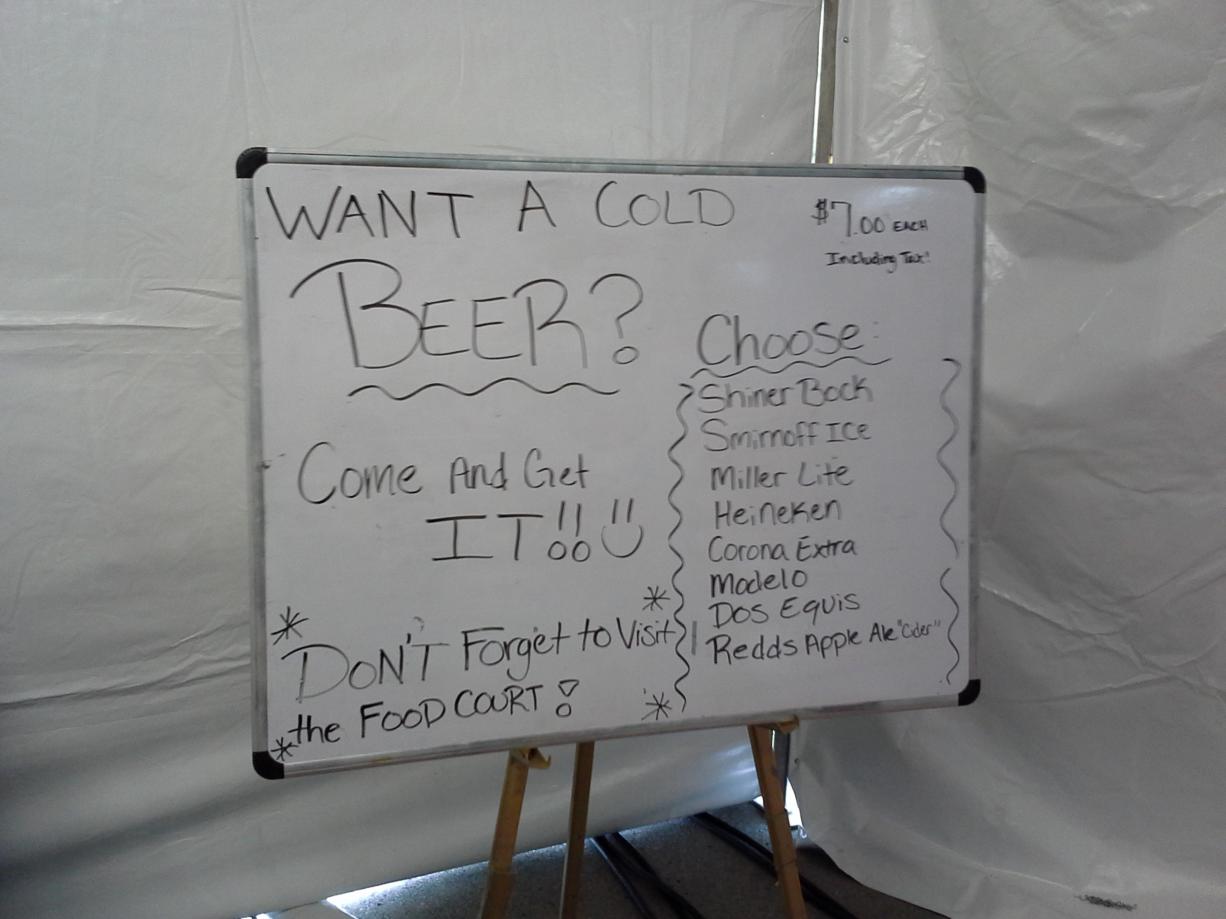 WANT A COLD
BEER?
Come And Get
IT!!
* DON'T Forget to Visit *
* the FOOD COURT! *
$7.00 EACH
Including Tax!
Choose:
Shiner Bock
Smirnoff ICE
Miller Lite
Heineken
Corona Extra
Modelo
Dos Equis
Redds Apple Ale "Cider"